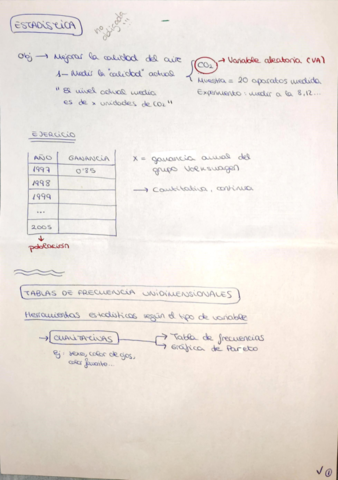 ESTADÍSTICA
no obligada
Obj → Mejorar la calidad del aire
1 - Medir la "calidad" actual
"El nivel actual medio
es de x unidades de CO₂"
CO₂ → Variable aleatoria (VA)
Muestra = 20 aparatos medida
Experimento: medir a la 8, 12...
EJERCICIO
AÑO GANANCIA
1997 0'35
1998
1999
...
2005
población
X = ganancia anual del
grupo Volkswagen
→ Cuantitativa, continua
TABLAS DE FRECUENCIA UNIDIMENSIONALES
Herramientas estadísticas según el tipo de variable
→ CUALITATIVAS → Tabla de frecuencias
→ Gráfica de Pareto
Ej: color de